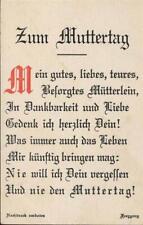 Zum Muttertag
Mein gutes, liebes, teures,
Besorgtes Mütterlein,
In Dankbarkeit und Liebe
Gedenk ich herzlich Dein!
Was immer auch das Leben
Mir künftig bringen mag:
Nie will ich Dein vergessen
Und nie den Muttertag!
Nachdruck verboten